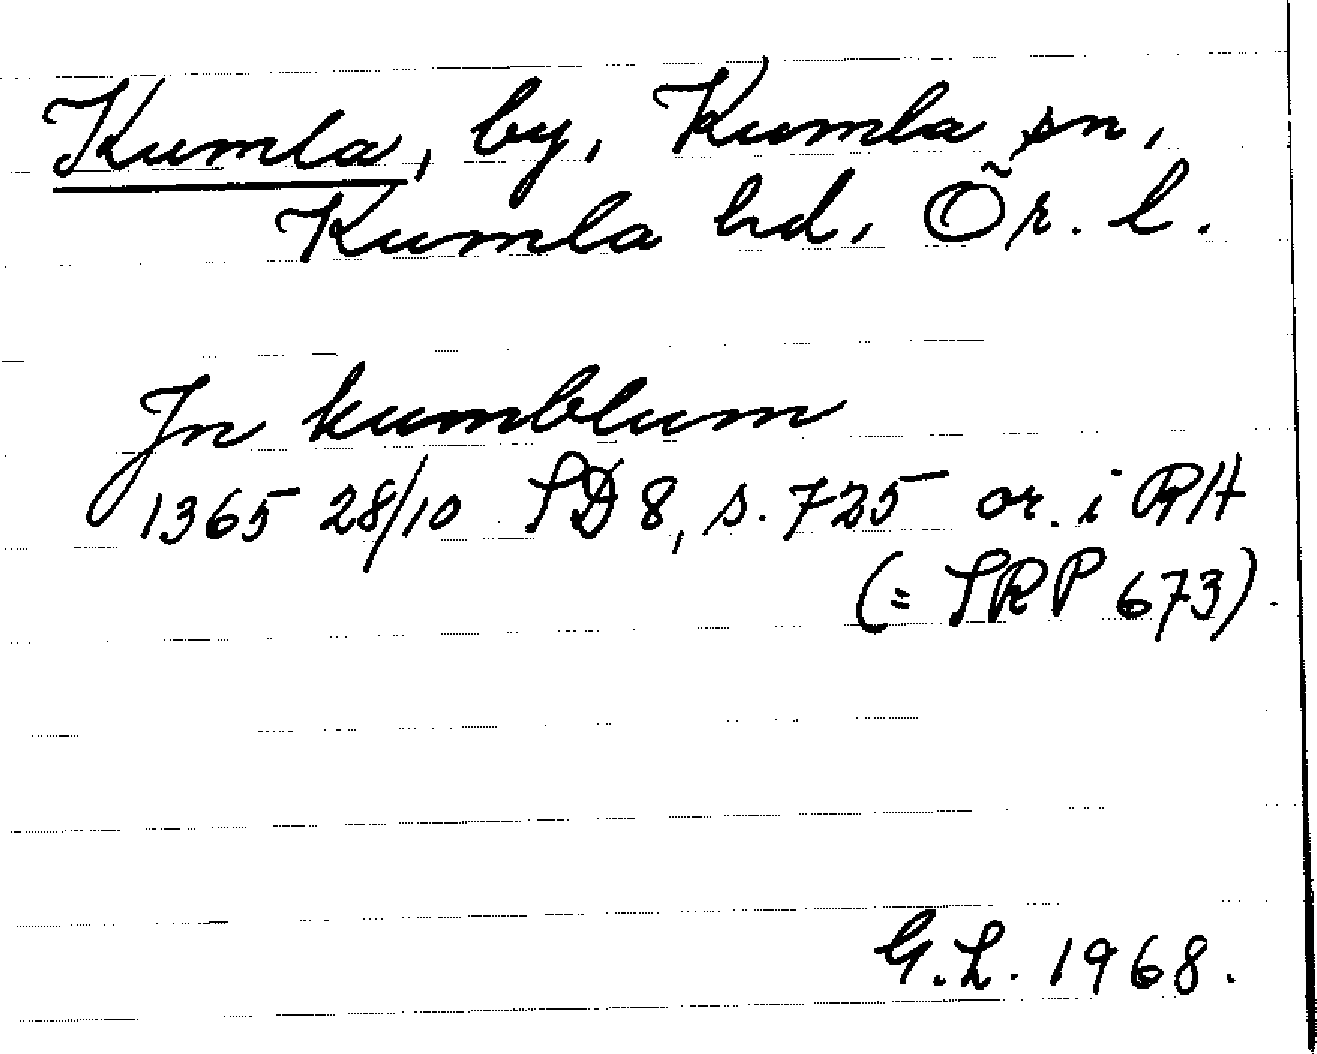 Kumla, by, Kumla sn,
Kumla hd, Ör. l.
Jn kumblum
1365 28/10 SD 8, s. 725 or. i RH
(= SRP 673).
G.L. 1968.